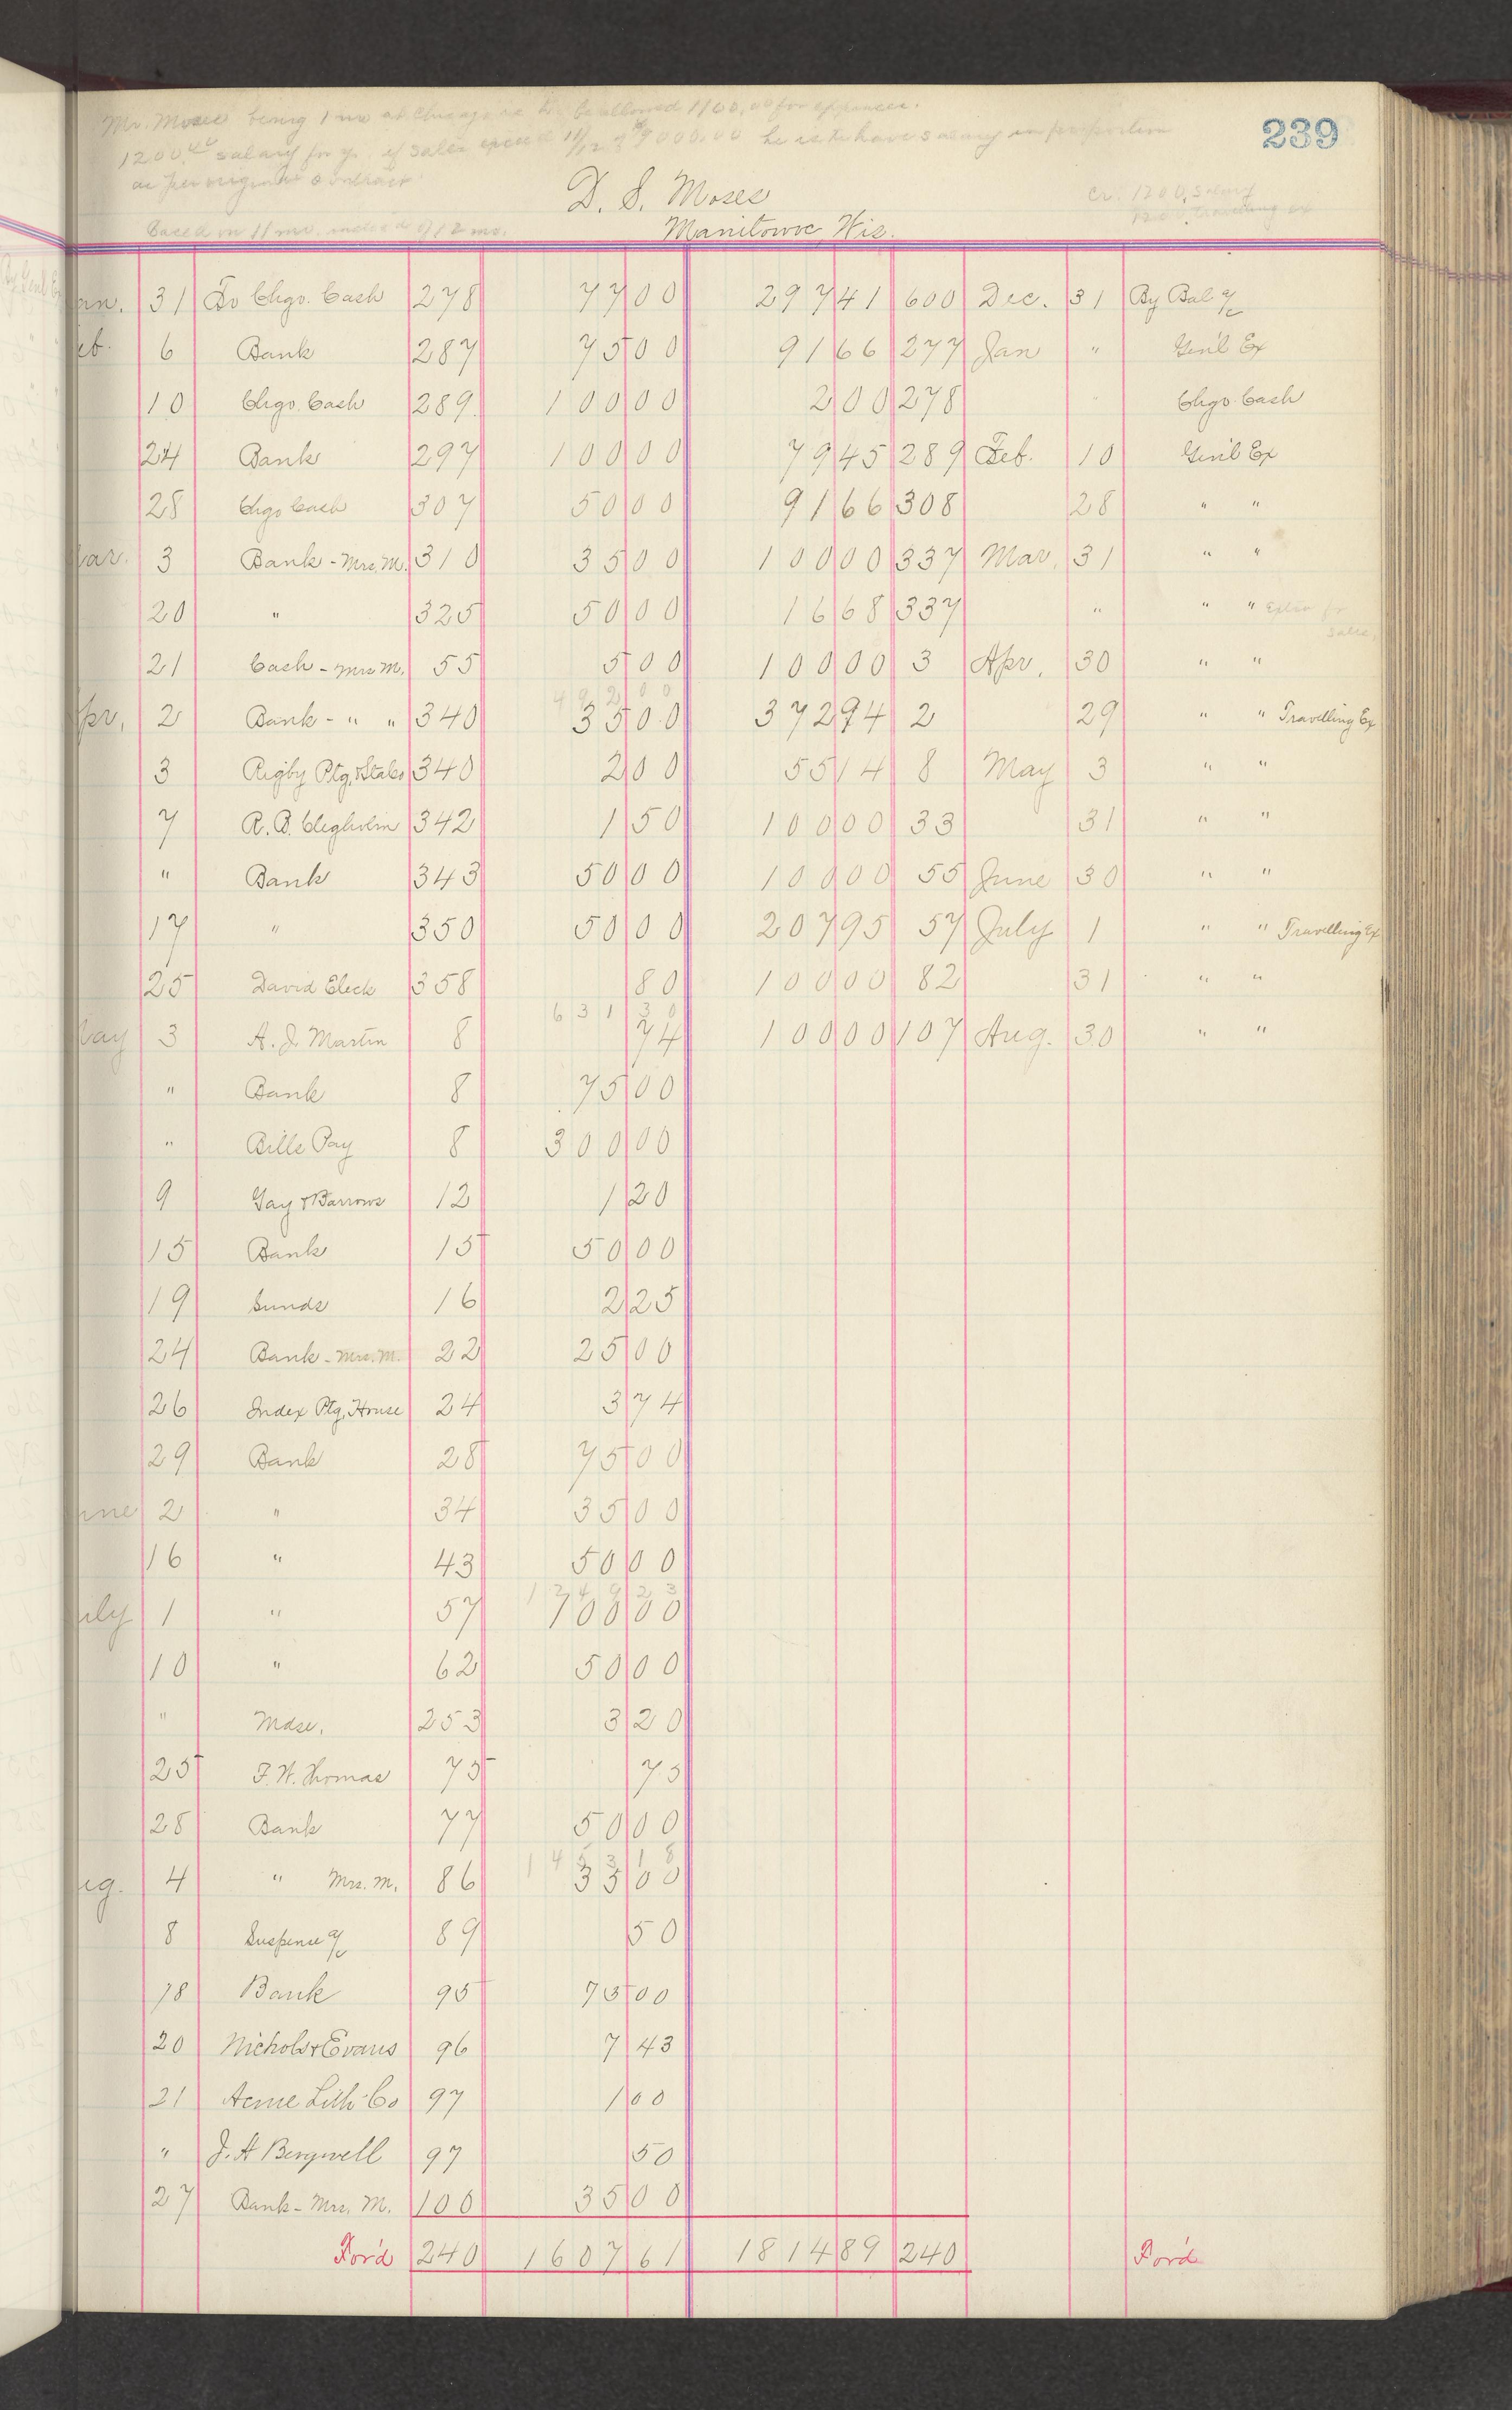 Mr. Moses being 1 mo at Chicago is to be allowed 1100.00 for expenses.
1200.00 salary for yr. if sales exceed 11/12 39000.00 he is to have salary in proportion
as per original contract
Based on 11 mo. instead of 12 mo.
239
D. S. Moses
Manitowoc, Wis.
Cr. 1200. Salary
1200. travelling ex
an. 31 To Chgo. Cash 278 77 00 297 41 600 Dec. 31 By Bal a/c
eb. 6 Bank 287 75 00 91 66 277 Jan " Gen'l Ex
10 Chgo. Cash 289 100 00 2 00 278 " Chgo. Cash
24 Bank 297 100 00 79 45 289 Feb. 10 Gen'l Ex
28 Chgo Cash 307 50 00 91 66 308 28 " "
ar. 3 Bank - Mrs. M. 310 35 00 100 00 337 Mar. 31 " "
20 " 325 50 00 16 68 337 " " " Extra for
sales.
21 Cash - Mrs M. 55 5 00 100 00 3 Apr. 30 " "
492 00
pr. 2 Bank - " " 340 35 00 372 94 2 29 " " Travelling Ex
3 Rigby Ptg. & Stable 340 2 00 55 14 8 May 3 " "
7 R. B. Cleghorn 342 1 50 100 00 33 31 " "
" Bank 343 50 00 100 00 55 June 30 " "
17 " 350 50 00 207 95 57 July 1 " " Travelling Ex
25 David Eleck 358 80 100 00 82 31 " "
631 30
ay 3 A. J. Martin 8 74 100 00 107 Aug. 30 " "
" Bank 8 75 00
" Bills Pay 8 300 00
9 Gay & Barrows 12 1 20
15 Bank 15 50 00
19 Sunds 16 2 25
24 Bank - Mrs. M. 22 25 00
26 Index Ptg. House 24 3 74
29 Bank 28 75 00
une 2 " 34 35 00
16 " 43 50 00
1249 23
uly 1 " 57 100 00
10 " 62 50 00
" Mdse. 253 3 20
25 F. W. Thomas 75 75
28 Bank 77 50 00
1453 18
ug. 4 " Mrs. M. 86 35 00
8 Suspense a/c 89 50
18 Bank 95 75 00
20 Nichols & Evans 96 7 43
21 Acme Lith Co 97 1 00
" J. A Bergwell 97 50
27 Bank - Mrs. M. 100 35 00
For'd 240 1607 61 1814 89 240 For'd